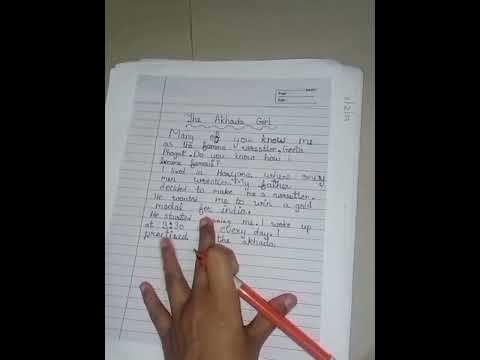 The Akhada Girl
Many of you know me
as the famous wrestler. Geeta
Phogat. Do you know how I
became famous?
I lived in Haryana where only
men wrestler. My father
decided to make me a wrestler.
He wanted me to win a gold
medal for india.
He started me. I woke up
at 3:30 every day. I
practised the akhada.